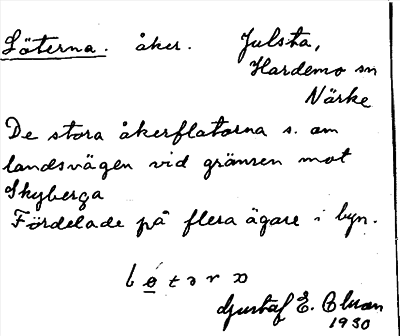 Löterna. åker. Julsta,
Hardemo sn
Närke
De stora åkerflatorna s. om
landsvägen vid gränsen mot
Skyberga
Fördelade på flera ägare i byn.
Gustaf E. Olson
1930